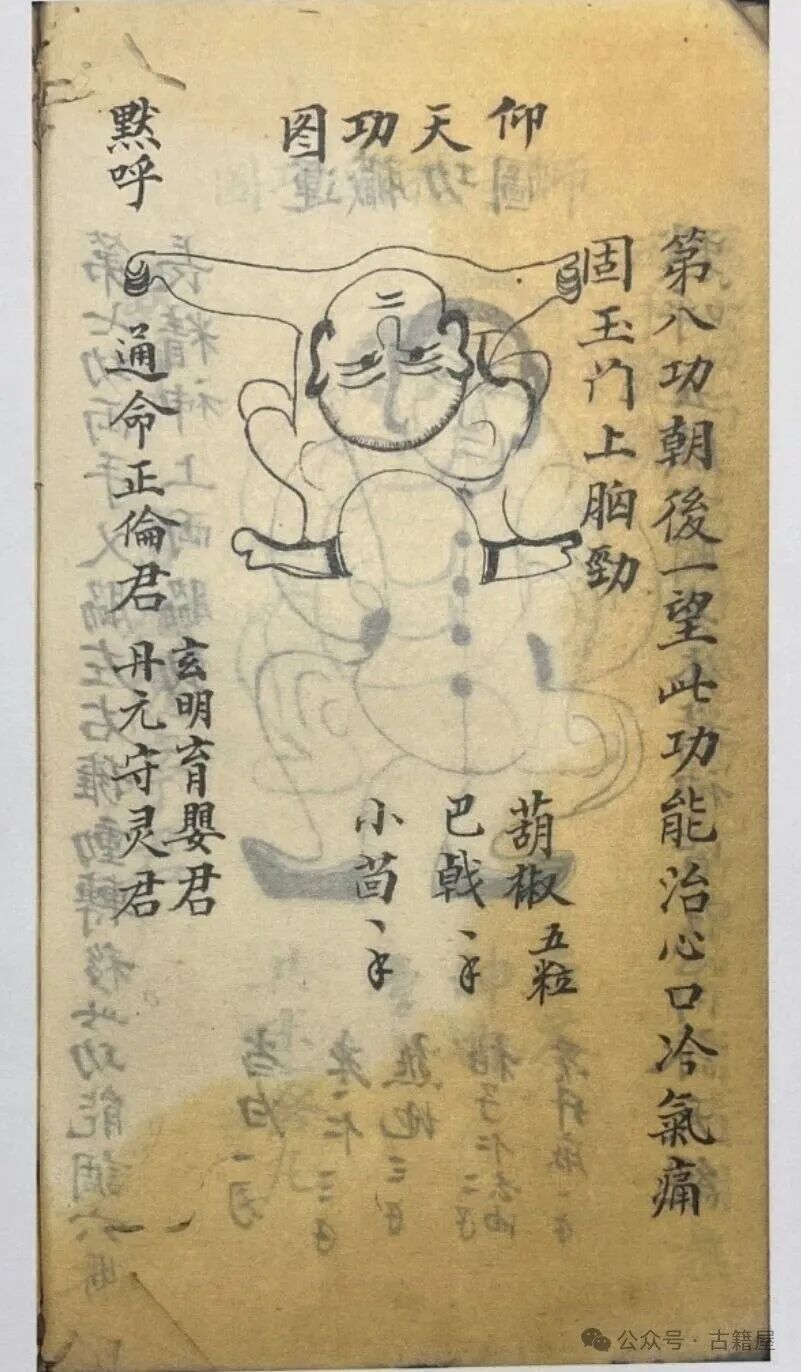 仰天功图
第八功朝後一望此功能治心口冷氣痛
固玉门上胸勁
葫椒五粒
巴戟
小茴
默呼
通命正倫君
玄明育嬰君
丹元守灵君
公众号·古籍屋